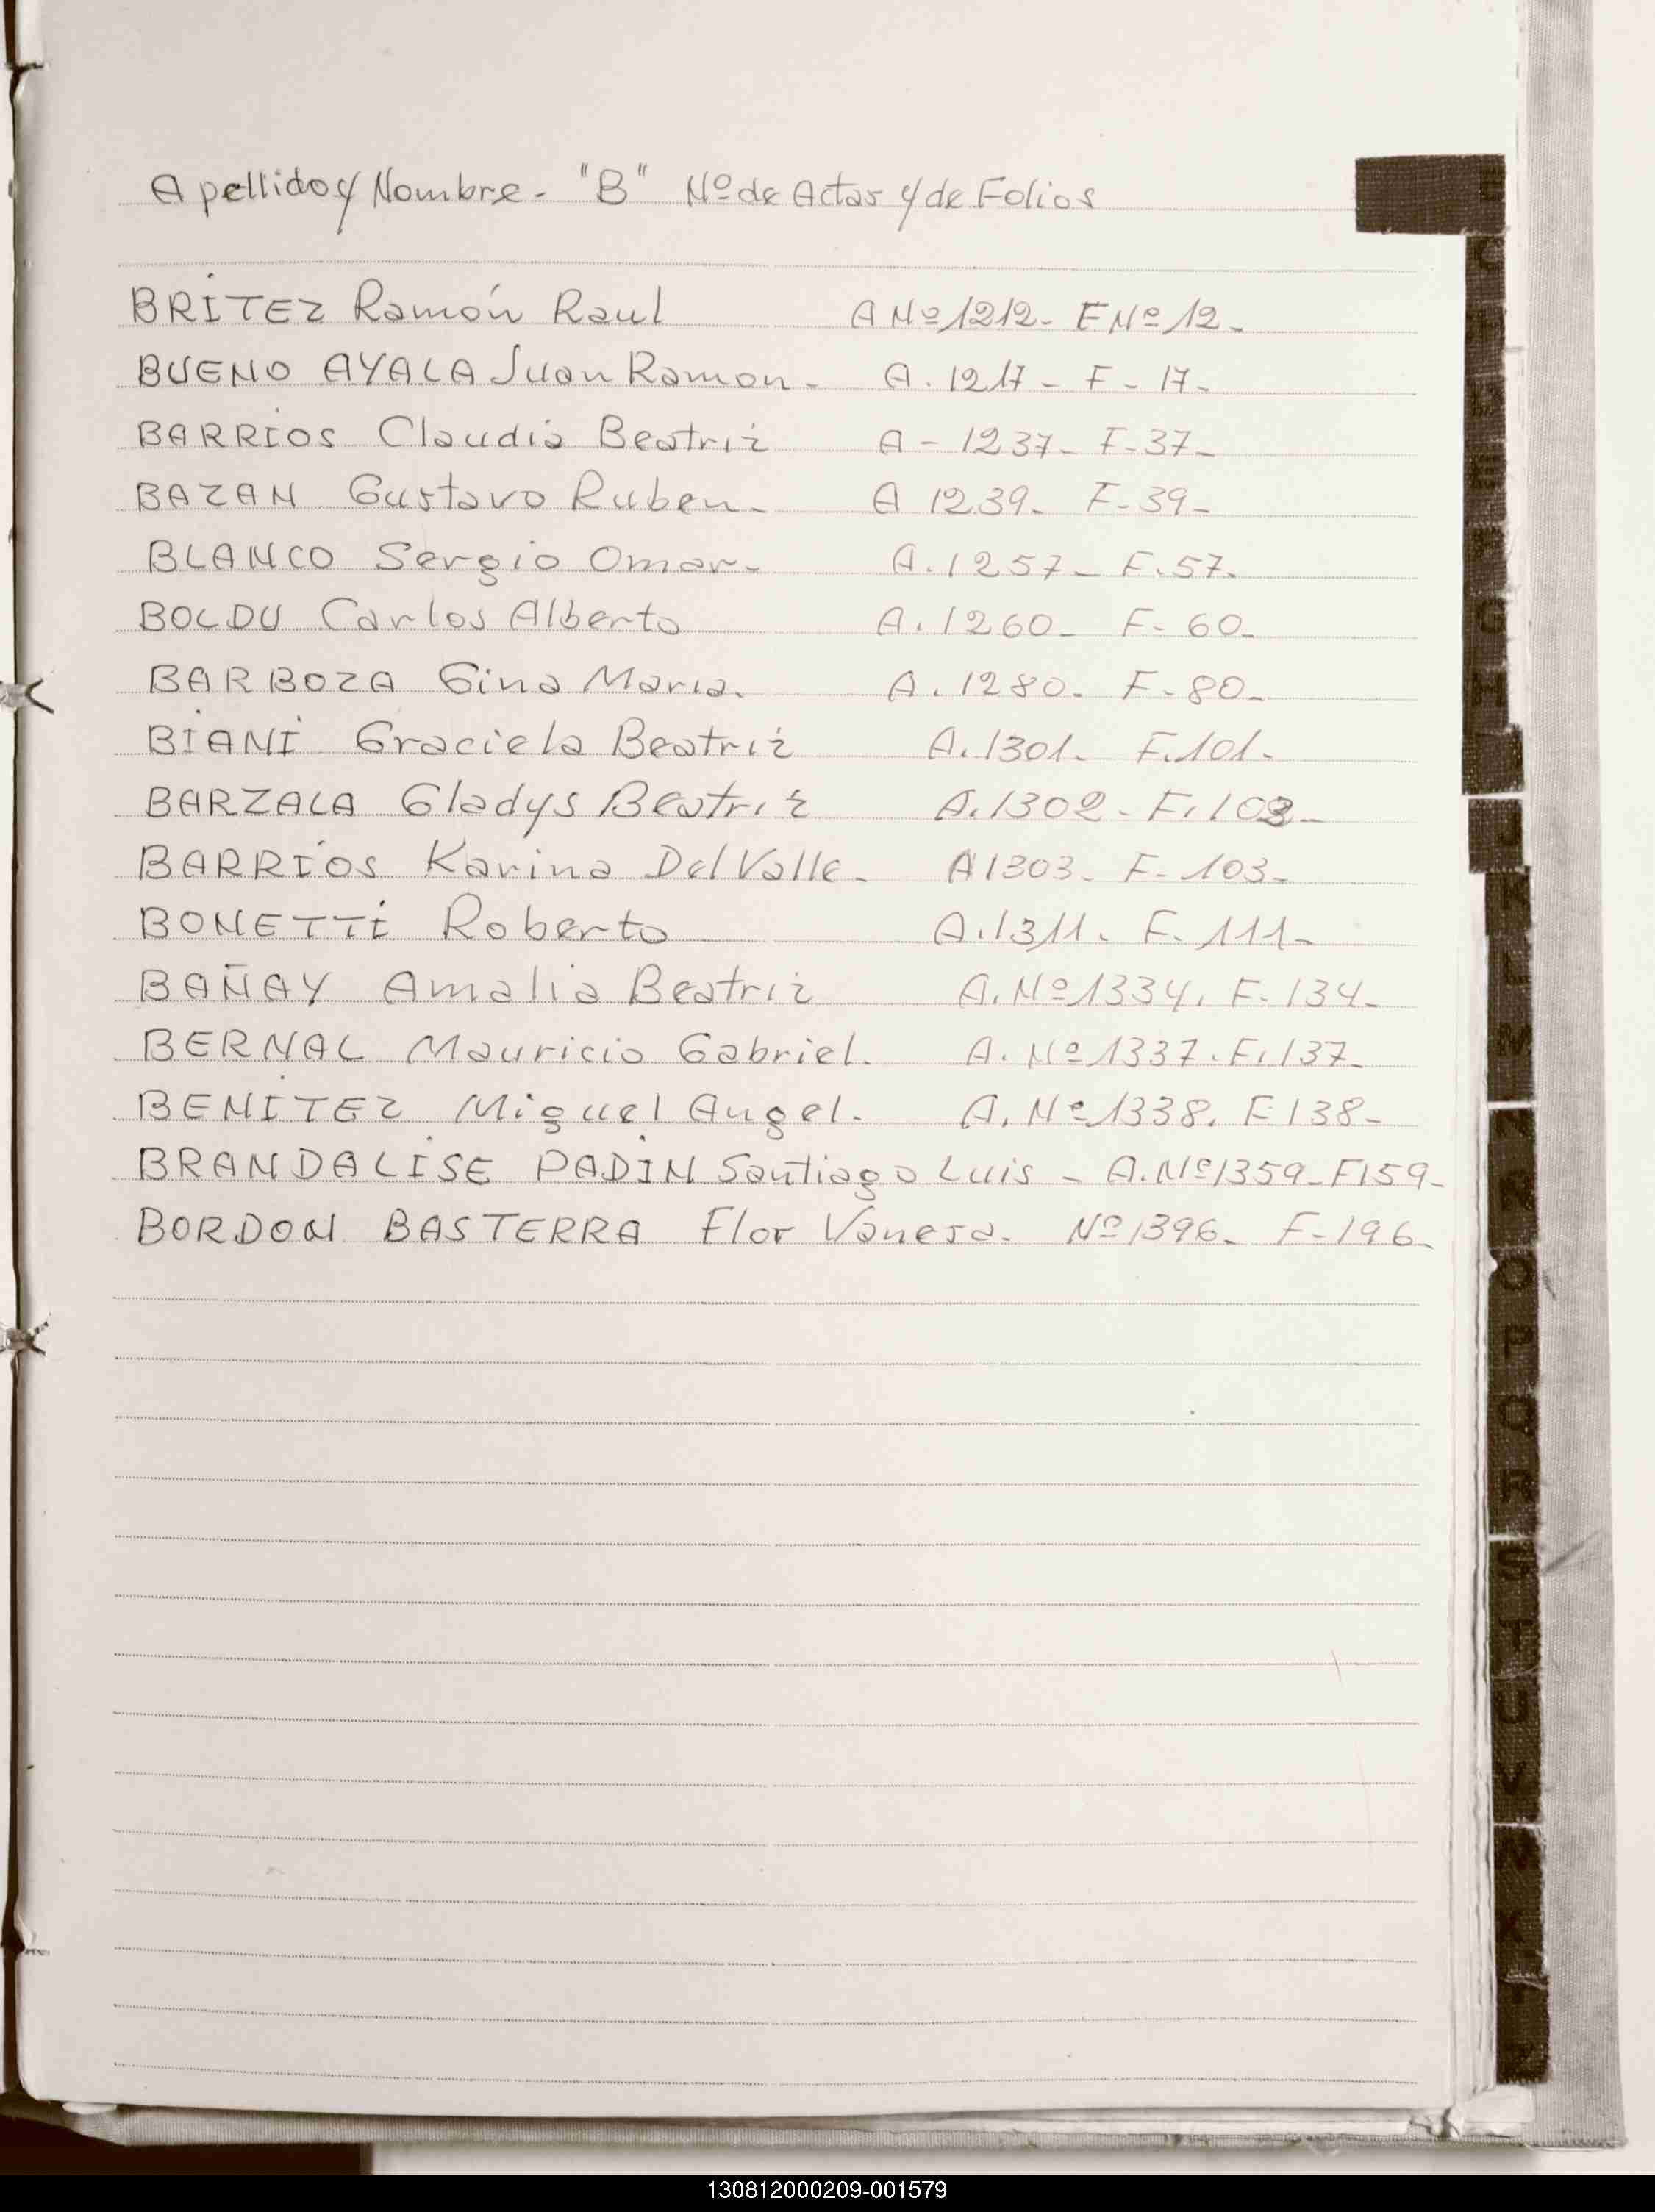 Apellido y Nombre - "B" Nº de Actas y de Folios
BRITEZ Ramón Raul A Nº 1212 - F Nº 12 -
BUENO AYALA Juan Ramon - A. 1217 - F - 17 -
BARRIOS Claudia Beatriz A - 1237 - F - 37 -
BAZAN Gustavo Ruben - A 1239 - F - 39 -
BLANCO Sergio Omar - A. 1257 - F. 57 -
BOLDU Carlos Alberto A. 1260 - F - 60 -
BARBOZA Gina Maria. A. 1280 - F - 80 -
BIANI Graciela Beatriz A. 1301 - F. 101 -
BARZALA Gladys Beatriz A. 1302 - F. 102 -
BARRIOS Karina Del Valle - A 1303 - F - 103 -
BONETTI Roberto A. 1311 - F. 111 -
BAÑAY Amalia Beatriz A. Nº 1334. F - 134 -
BERNAL Mauricio Gabriel. A. Nº 1337. F. 137 -
BENITEZ Miguel Angel. A. Nº 1338. F 138 -
BRANDALISE PADIN Santiago Luis - A. Nº 1359 - F 159 -
BORDON BASTERRA Flor Vanesa. Nº 1396 - F - 196 -
130812000209-001579